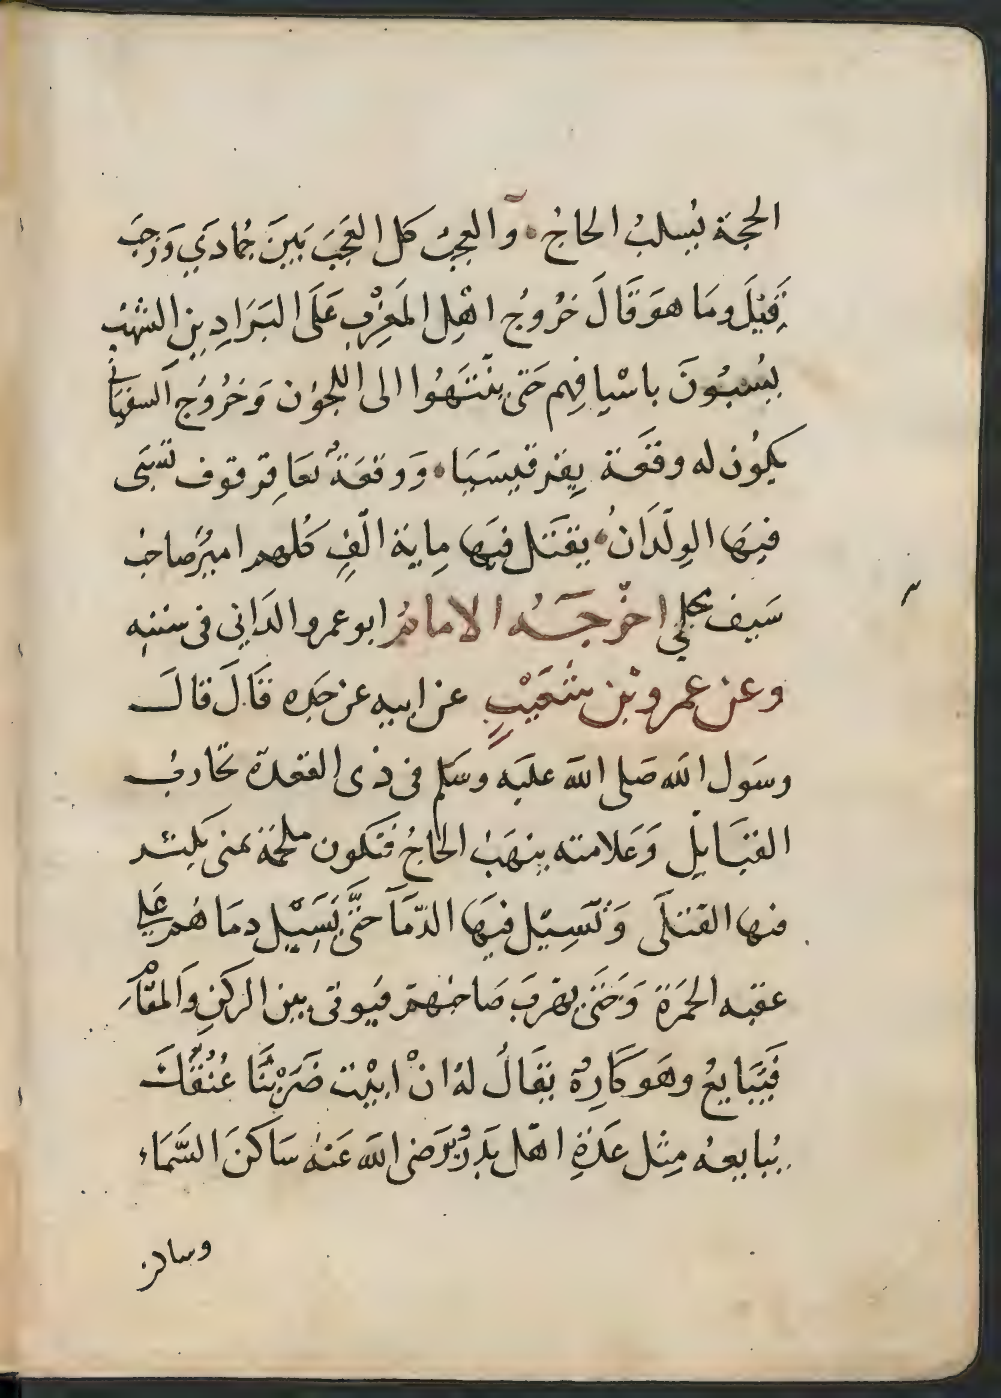 الحجة يُسلبُ الحاجُ وَالعجبُ كل العَجَبَ بَينَ جُمادَي وَرَجَبَ
قِيْلَ ومَا هوَ قَالَ خرُوجُ اهْلِ المَغرْبِ عَلَى البَرَادِينِ الشهبِ
يُسبُونَ باسْيافِهم حَتى ينْتَهُوا الى اللجوُن وَخرُوُج السفيَاني
يكوُن له وقعَة بِقرقيسَيَا وَوقعَةٌ بعَاقرقوف تسَبَى
فيهَا الولدَانُ يقتَل فيهَا ماية الْفٍ كُلهم اميرُ صاحبُ
سَيف محلي اخرجَهُ الامامُ ابو عمرو الدَاني فى سننه
وعن عمرو بْن شعَيْبٍ عن ابيه عن جَدِه قَالَ قالَ
رسَول الله صَلى الله عليَه وسَلم فى ذى القعدَة تحَاربُ
القبَايلِ وَعَلامته ينهَبُ الحَاجُ فتكون ملحمَة بمنى يكثر
فيها القتلَى وَتَسِيْل فيهَا الدّمَآ حَتَّى تَسِيْل دمَاهُم عَلى
عقبه الجمَرَة وَحَتى يهَربَ صَاحبُهم فيَوتى بين الركن وَالمقَامِ
فَيَبَايعُ وهَو كَارِهٌ يقَالُ لهُ انْ ابيْت ضَربْنَا عُنُقَكَ
يُبايعهُ مِثْل عَدةِ اهل بَدرٍ وَيرَضى الله عَنهُ سَاكنَ السَّمَاء
وساكن